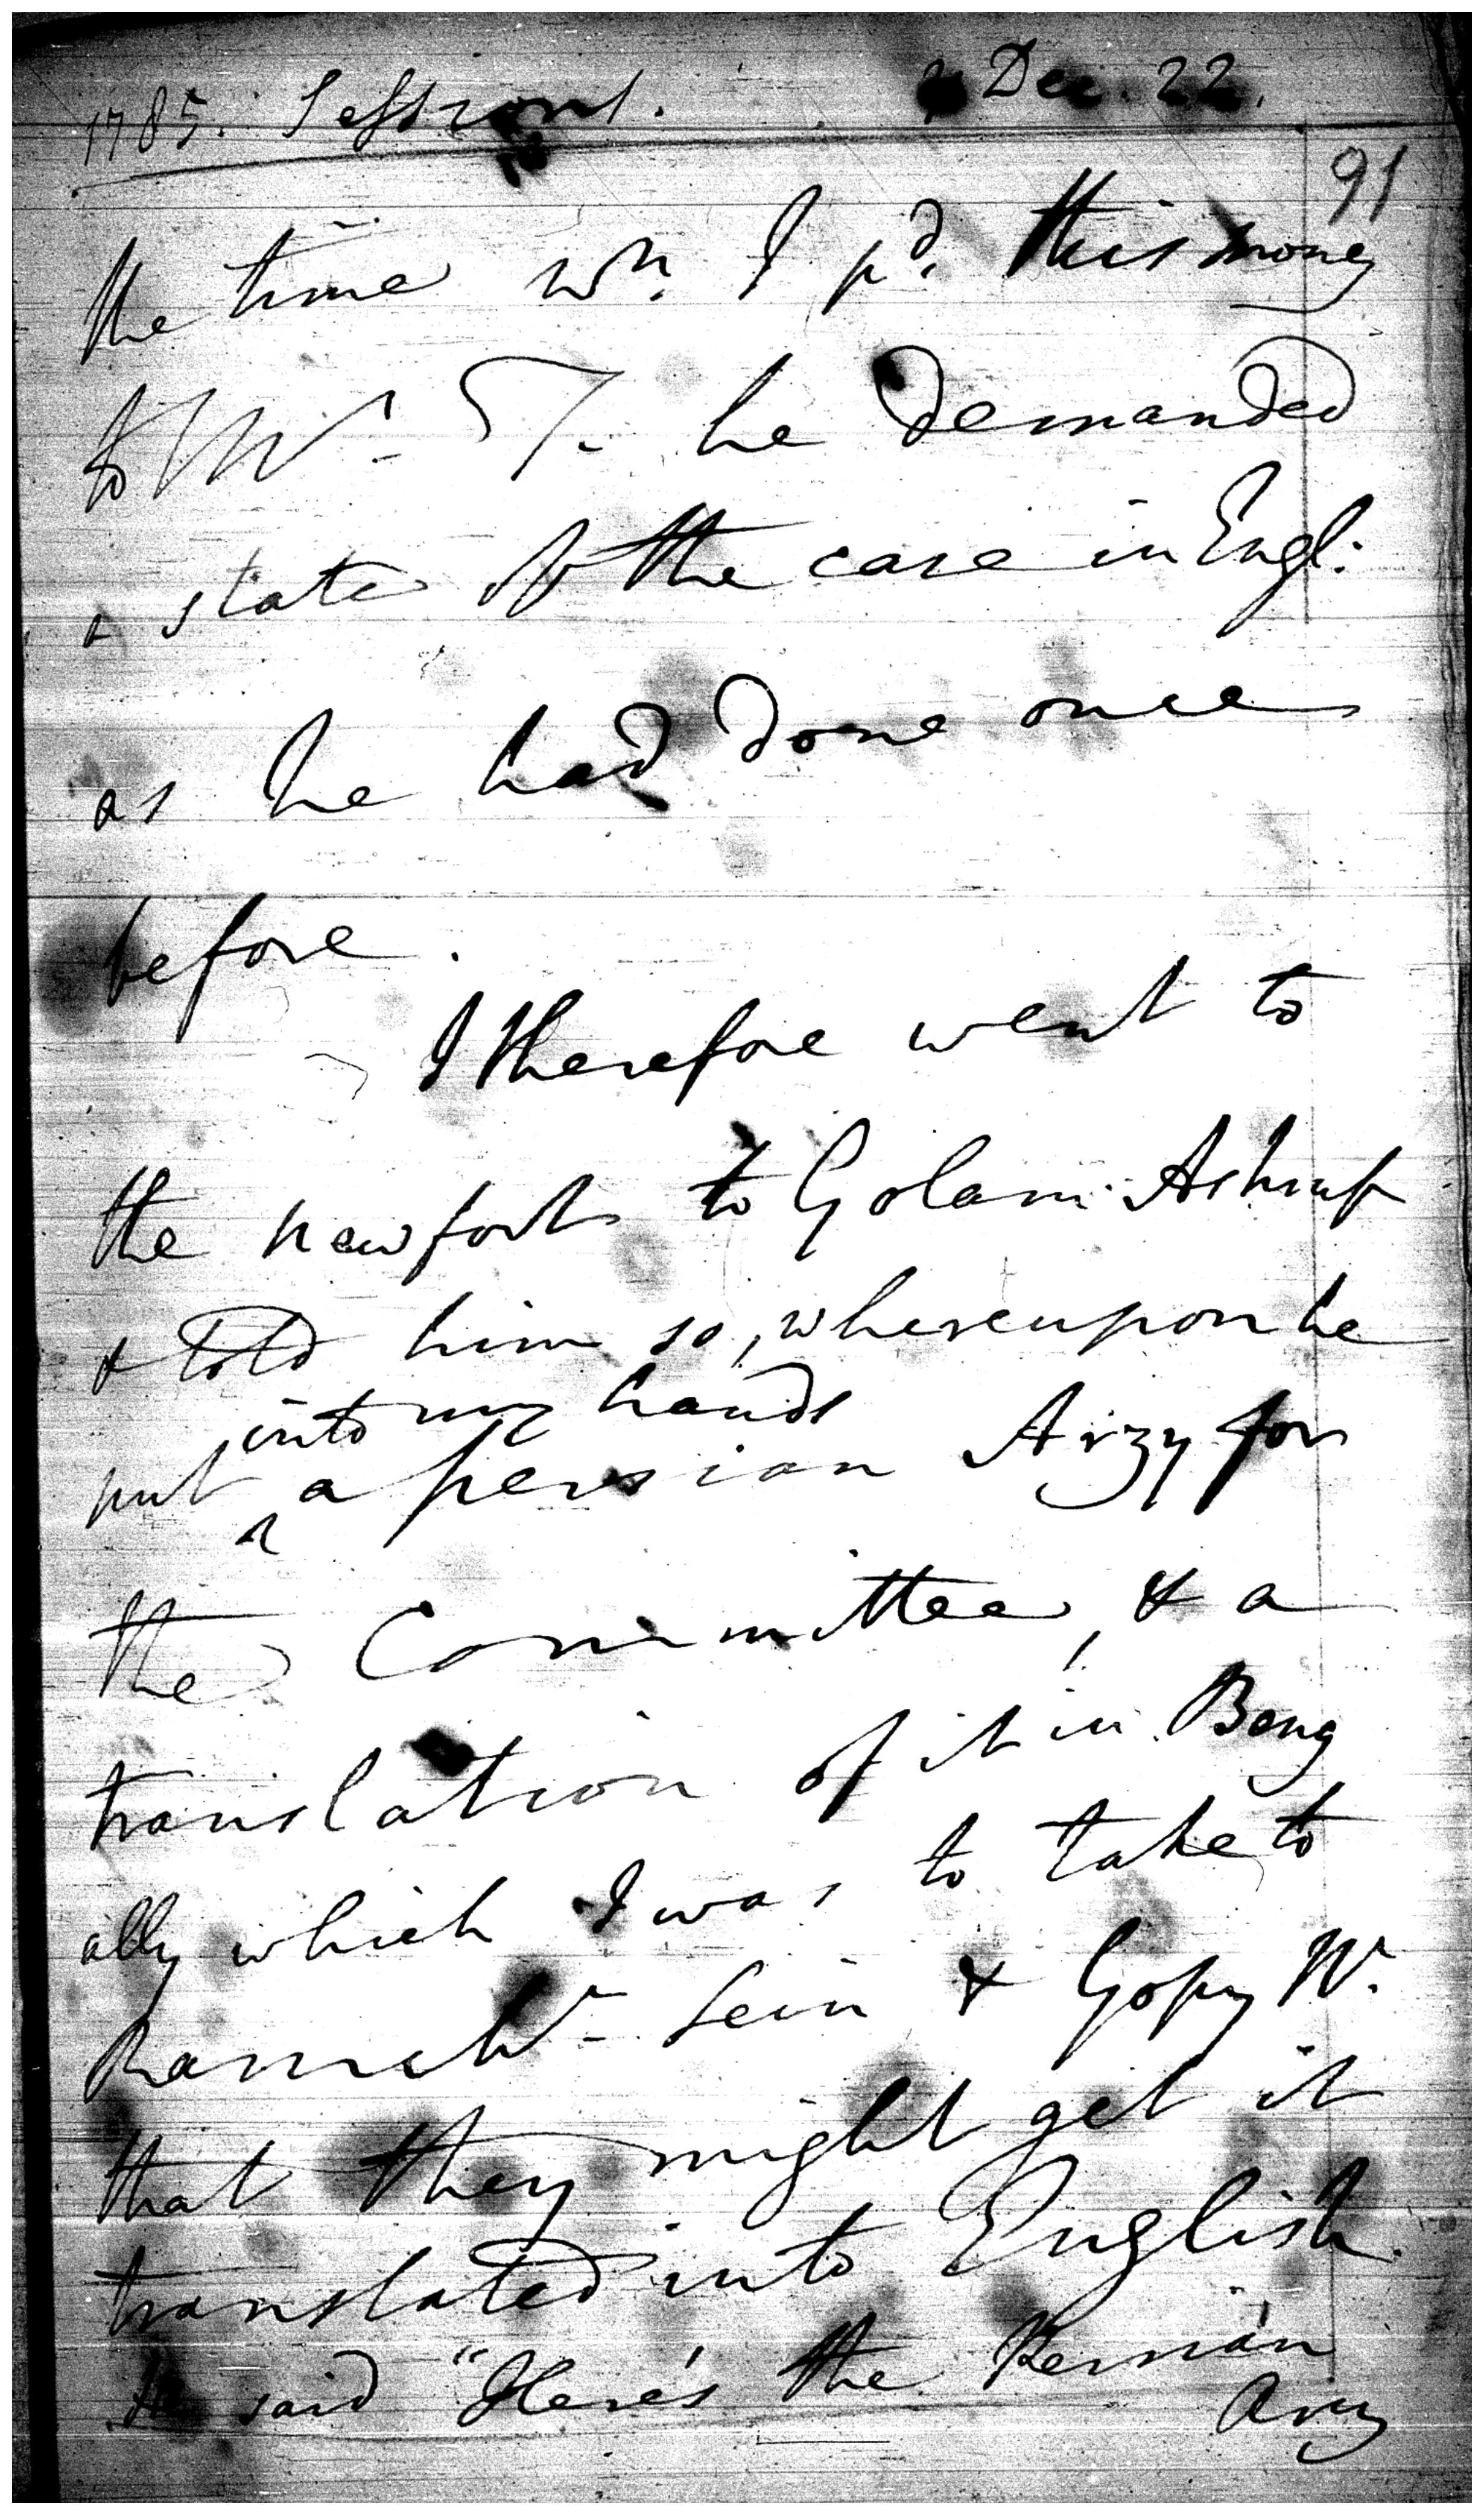 1785. Sessions. Dec. 22.
91
the time wn. I pd. this money
to Mr. T. he demanded
a state of the case in Engl:
as he had done once
before.
I therefore went to
the new fort to Golam Ashruf
& told him so, whereupon he
into my hands
put ^ a persian Arzy for
the Committee, & a
translation of it in Beng
ally which I was to take to
Sein & Gopy
that they might get it
translated into English.
He said "Here's the Persian
Arzy